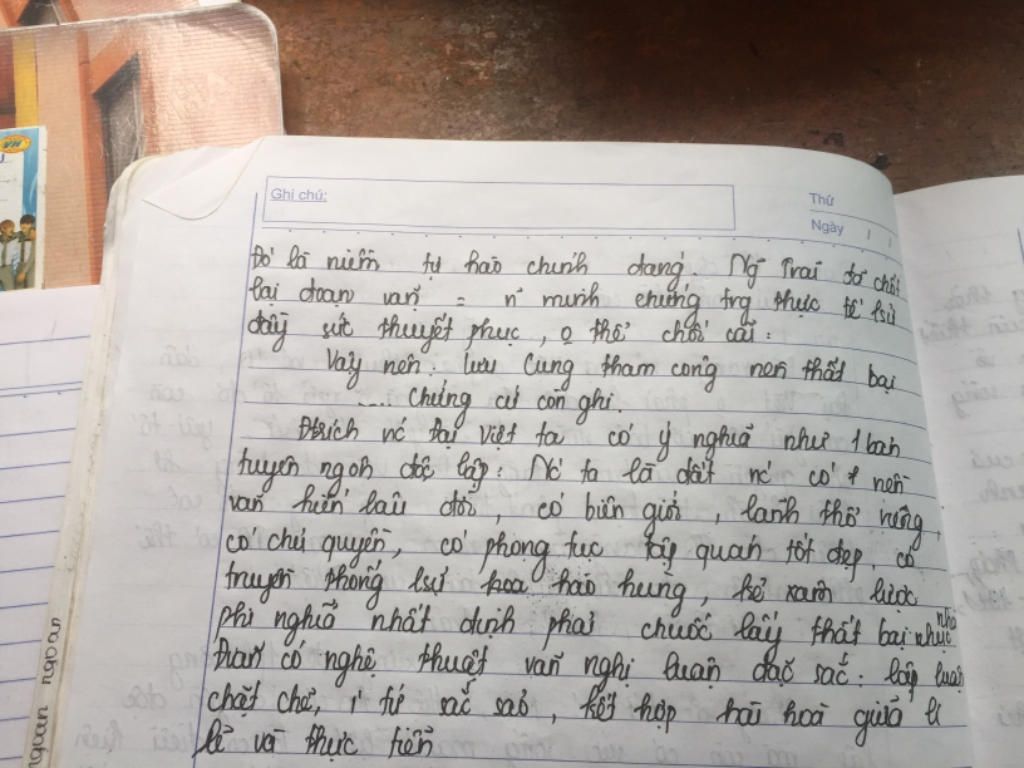 Ghi chú:
Thứ
Ngày / /
Đó là niềm tự hào chính đáng. Ng Trãi đã chốt
lại đoạn văn = n~ minh chứng trg thực tế lsử
đầy sức thuyết phục, o thể chối cãi:
Vậy nên: Lưu Cung tham công nên thất bại
.... Chứng cứ còn ghi.
Đtrích nc Đại Việt ta có ý nghĩa như 1 bản
tuyên ngôn độc lập: Nc ta là đất nc có 1 nền
văn hiến lâu đời, có biên giới, lãnh thổ riêng,
có chủ quyền, có phong tục tập quán tốt đẹp, có
truyền thống lsử hào hùng, kẻ xâm lược
phi nghĩa nhất định phải chuốc lấy thất bại nhục nhã
Đvăn có nghệ thuật văn nghị luận đặc sắc: lập luận
chặt chẽ, tứ sắc sảo, kết hợp hài hoà giữa lí
lẽ và thực tiễn
nguan ngoan